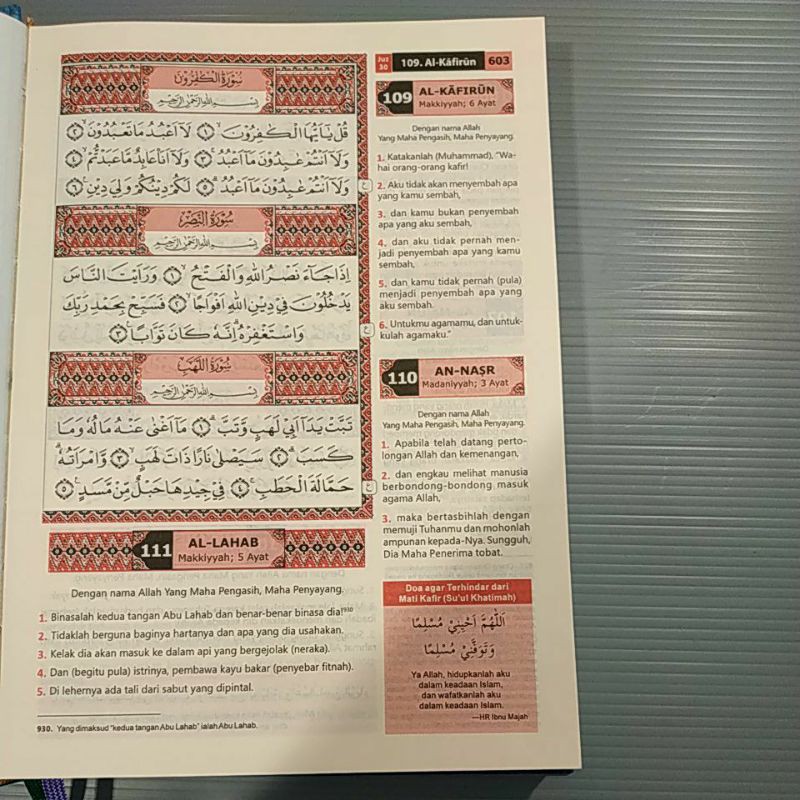 سُوْرَةُ الْكٰفِرُوْنَ
بِسْمِ اللّٰهِ الرَّحْمٰنِ الرَّحِيْمِ
قُلْ يٰٓاَيُّهَا الْكٰفِرُوْنَۙ ١ لَآ اَعْبُدُ مَا تَعْبُدُوْنَۙ ٢
وَلَآ اَنْتُمْ عٰبِدُوْنَ مَآ اَعْبُدُۚ ٣ وَلَآ اَنَا۠ عَابِدٌ مَّا عَبَدْتُّمْۙ ٤
وَلَآ اَنْتُمْ عٰبِدُوْنَ مَآ اَعْبُدُۗ ٥ لَكُمْ دِيْنُكُمْ وَلِيَ دِيْنِ ٦
سُوْرَةُ النَّصْرِ
بِسْمِ اللّٰهِ الرَّحْمٰنِ الرَّحِيْمِ
اِذَا جَاۤءَ نَصْرُ اللّٰهِ وَالْفَتْحُۙ ١ وَرَاَيْتَ النَّاسَ
يَدْخُلُوْنَ فِيْ دِيْنِ اللّٰهِ اَفْوَاجًاۙ ٢ فَسَبِّحْ بِحَمْدِ رَبِّكَ
وَاسْتَغْفِرْهُۗ اِنَّهٗ كَانَ تَوَّابًا ٣
سُوْرَةُ اللَّهَبِ
بِسْمِ اللّٰهِ الرَّحْمٰنِ الرَّحِيْمِ
تَبَّتْ يَدَآ اَبِيْ لَهَبٍ وَّتَبَّۗ ١ مَآ اَغْنٰى عَنْهُ مَالُهٗ وَمَا
كَسَبَۗ ٢ سَيَصْلٰى نَارًا ذَاتَ لَهَبٍۙ ٣ وَّامْرَاَتُهٗۗ
حَمَّالَةَ الْحَطَبِۚ ٤ فِيْ جِيْدِهَا حَبْلٌ مِّنْ مَّسَدٍ ٥
111 AL-LAHAB
Makkiyyah; 5 Ayat
Dengan nama Allah Yang Maha Pengasih, Maha Penyayang.
1. Binasalah kedua tangan Abu Lahab dan benar-benar binasa dia!930
2. Tidaklah berguna baginya hartanya dan apa yang dia usahakan.
3. Kelak dia akan masuk ke dalam api yang bergejolak (neraka).
4. Dan (begitu pula) istrinya, pembawa kayu bakar (penyebar fitnah).
5. Di lehernya ada tali dari sabut yang dipintal.
930. Yang dimaksud "kedua tangan Abu Lahab" ialah Abu Lahab.
Juz 30
109. Al-Kāfirūn 603
109 AL-KĀFIRŪN
Makkiyyah; 6 Ayat
Dengan nama Allah
Yang Maha Pengasih, Maha Penyayang.
1. Katakanlah (Muhammad), "Wa-
hai orang-orang kafir!
2. Aku tidak akan menyembah apa
yang kamu sembah,
3. dan kamu bukan penyembah
apa yang aku sembah,
4. dan aku tidak pernah men-
jadi penyembah apa yang kamu
sembah,
5. dan kamu tidak pernah (pula)
menjadi penyembah apa yang
aku sembah.
6. Untukmu agamamu, dan untuk-
kulah agamaku."
110 AN-NAṢR
Madaniyyah; 3 Ayat
Dengan nama Allah
Yang Maha Pengasih, Maha Penyayang.
1. Apabila telah datang perto-
longan Allah dan kemenangan,
2. dan engkau melihat manusia
berbondong-bondong masuk
agama Allah,
3. maka bertasbihlah dengan
memuji Tuhanmu dan mohonlah
ampunan kepada-Nya. Sungguh,
Dia Maha Penerima tobat.
Doa agar Terhindar dari
Mati Kafir (Su'ul Khatimah)
اَللّٰهُمَّ اَحْيِنِيْ مُسْلِمًا
وَتَوَفَّنِيْ مُسْلِمًا
Ya Allah, hidupkanlah aku
dalam keadaan Islam,
dan wafatkanlah aku
dalam keadaan Islam.
—HR Ibnu Majah